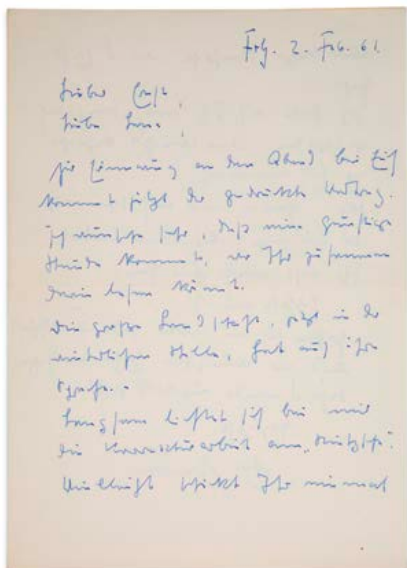 Frbg. 2. Feb. 61.
Lieber
Liebe
zur Erinnerung an den Abend bei
kommt jetzt der gedruckte Vortrag.
Ich wünsche sehr, daß eine günstige
Stunde kommt, wo Ihr zusammen
darin lesen könnt.
Die große Landschaft, jetzt in der
winterlichen Stille, hat auch ihre
Sprache..
Langsam lichtet sich bei mir
die Korrekturarbeit am „Nietzsche".
Vielleicht schickt Ihr einmal